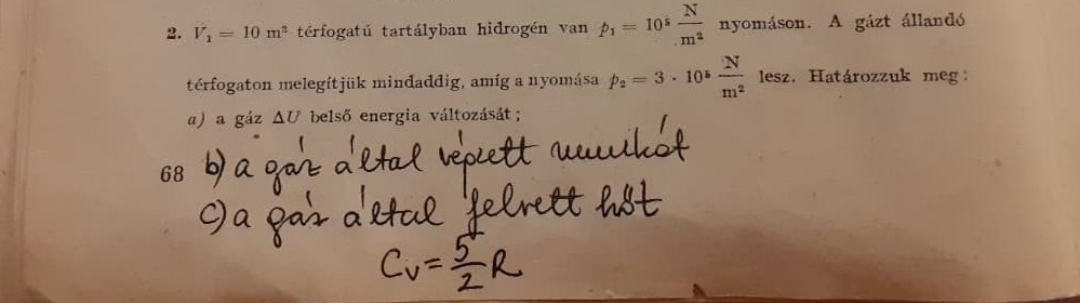 2. V₁ = 10 m³ térfogatú tartályban hidrogén van p₁ = 10⁵ N/m² nyomáson. A gázt állandó
térfogaton melegítjük mindaddig, amíg a nyomása p₂ = 3 · 10⁵ N/m² lesz. Határozzuk meg:
a) a gáz ΔU belső energia változását;
68 b) a gáz által végzett munkát
c) a gáz által felvett hőt
Cv = 5/2 R